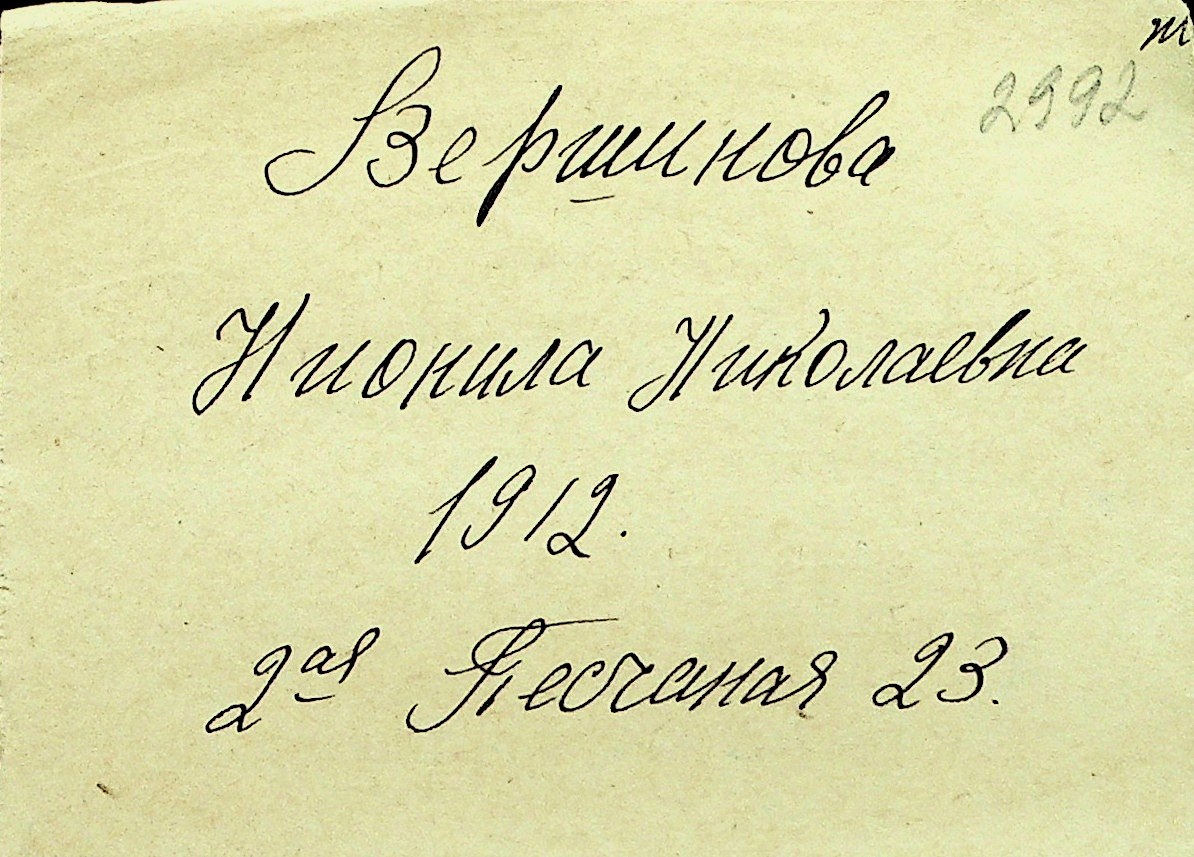 т
2992
Вершинова
Нионила Николаевна
1912.
2ая Песчаная 23.